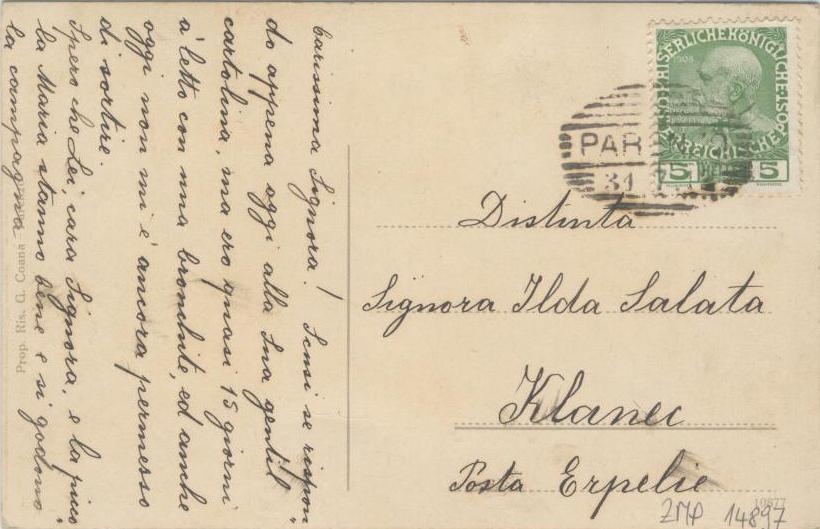 Carissima Signora! Scusi se rispon„
do appena oggi alla Sua gentil
cartolina, ma ero quasi 15 giorni
à letto con una bronchite, ed anche
oggi non mi è ancora permesso
di sortire.
Spero che Lei, cara Signora, e la picco„
la Maria stanno bene e si godono
la campagna
Prop. Ris. G. Coana
KAISERLICHE KÖNIGLICHE ÖSTERREICHISCHE POST
1908
5 5
PAR
31
Distinta
Signora Ilda Salata
Klanec
Posta Erpelie
10877
ZMP 14897